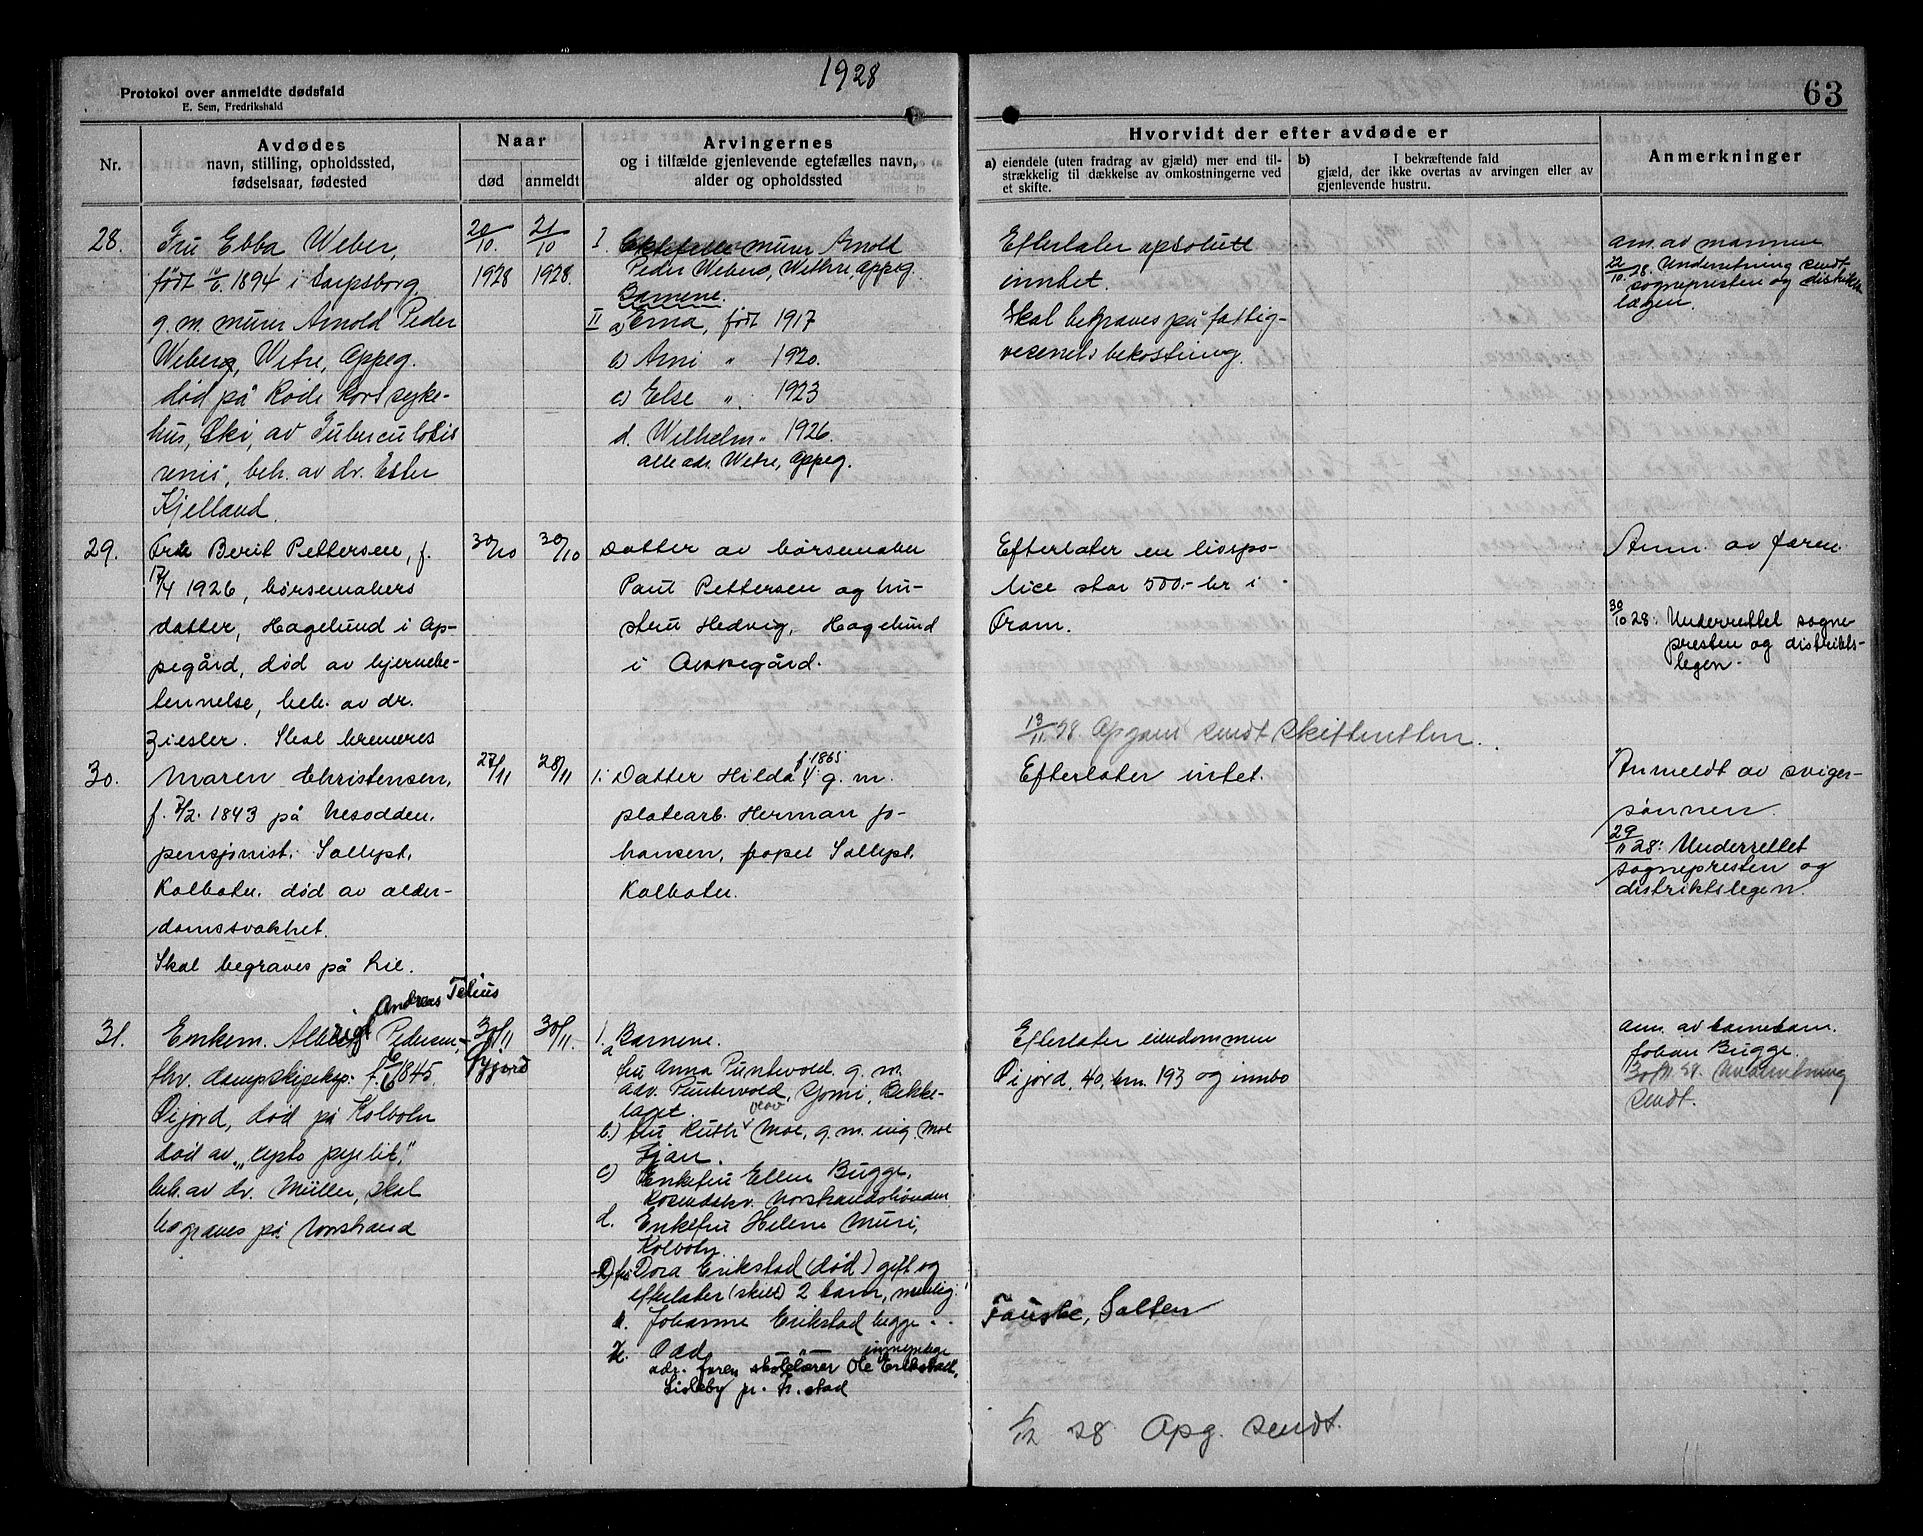 1928
63
Protokol over anmeldte dødsfald
E. Sem, Fredrikshald
Nr.
Avdødes
navn, stilling, opholdssted,
fødselsaar, fødested
Naar
død
anmeldt
Arvingernes
og i tilfælde gjenlevende egtefælles navn,
alder og opholdssted
Hvorvidt der efter avdøde er
a) eiendele (uten fradrag av gjæld) mer end til-
strækkelig til dækkelse av omkostningerne ved
et skifte.
b) I bekræftende fald
gjæld, der ikke overtas av arvingen eller av
gjenlevende hustru.
Anmerkninger
28.
Fru Ebba Weber,
født 1894 i Sarpsborg
g. m. murer Arnold Peder
Weberg, Wetre, Oppeg.
død på Røde Kors syke-
hus, Ski, av Tuberculosis
renis, beh. av dr. Ester
Kjelland.
20/10. 1928
21/10 1928.
I. murer Arnold
Peder Weberg, Wethre, Oppeg.
Barnene.
II a) Erna, født 1917
b) Arni " 1920.
c) Else " 1923
d. Wilhelm " 1926.
alle adr. Wetre, Oppeg.
Efterlater absolutt
inntet.
Skal begraves på fattig-
vesenets bekostning.
anm. av mannen
22/10 28. Underretning sendt
sognepresten og distrikts
lægen.
29.
Berit Pettersen, f.
17/4 1926, børsemakers
datter, Hagelund i Op-
pegård, død av hjernebe-
tennelse, beh. av dr.
Ziesler. Skal kremeres
30/10
30/10
Datter av børsemaker
Paul Pettersen og hu-
stru Hedvig, Hagelund
i Oppegård.
Efterlater en livspo-
lice stor 500.- kr i
Fram.
13/11 28. Opgave sendt skifteretten.
Anm. av faren.
30/10 28: Underrettet sogne-
presten og distrikts-
legen.
30.
Maren Christensen,
f. 7/2. 1843 på Nesodden.
pensjonist. Solløst,
Kolbotn. død av alder-
domssvakhet.
Skal begraves på Ski.
27/11
28/11
1. Datter Hilda f. 1865 g. m.
platearb. Herman Jo-
hansen, Solløst,
Kolbotn.
Efterlater intet.
Anmeldt av sviger-
sønnen.
29/11 28: Underrettet
sognepresten og
distriktslegen.
31.
Andreas
Enkem. Pedersen,
fhv. dampskipeksp. 1845.
Øijord, død på Kolbotn
død av
beh. av dr. Müller, skal
begraves på Norstrand
30/11
30/11.
1. Barnene.
a fru Anna Puntervold. g. m.
adv. Puntervold, Bekke-
laget.
b.) fru Ruth Moe, g. m. ing. Moe
Ljan.
c) Enkefru Ellen Bugge,
Norstrandshøgden
d. Enkefru Helene Muri,
Kolbotn.
fru Dora Erikstad (død) gift og
efterlater (skilt) 2 barn, nemlig:
Johanne Erikstad begge
Odd
adr. faren skolelærer Ole Erikstad,
Lisleby pr. Fr.stad
Efterlater eiendommen
Øijord, 40, bnr. 193 og innbo
Fauske, Salten
1/12 28 Opg. sendt.
anm. av barnebarn.
Johan Bugge.
30/11 28. Underretning
sendt.